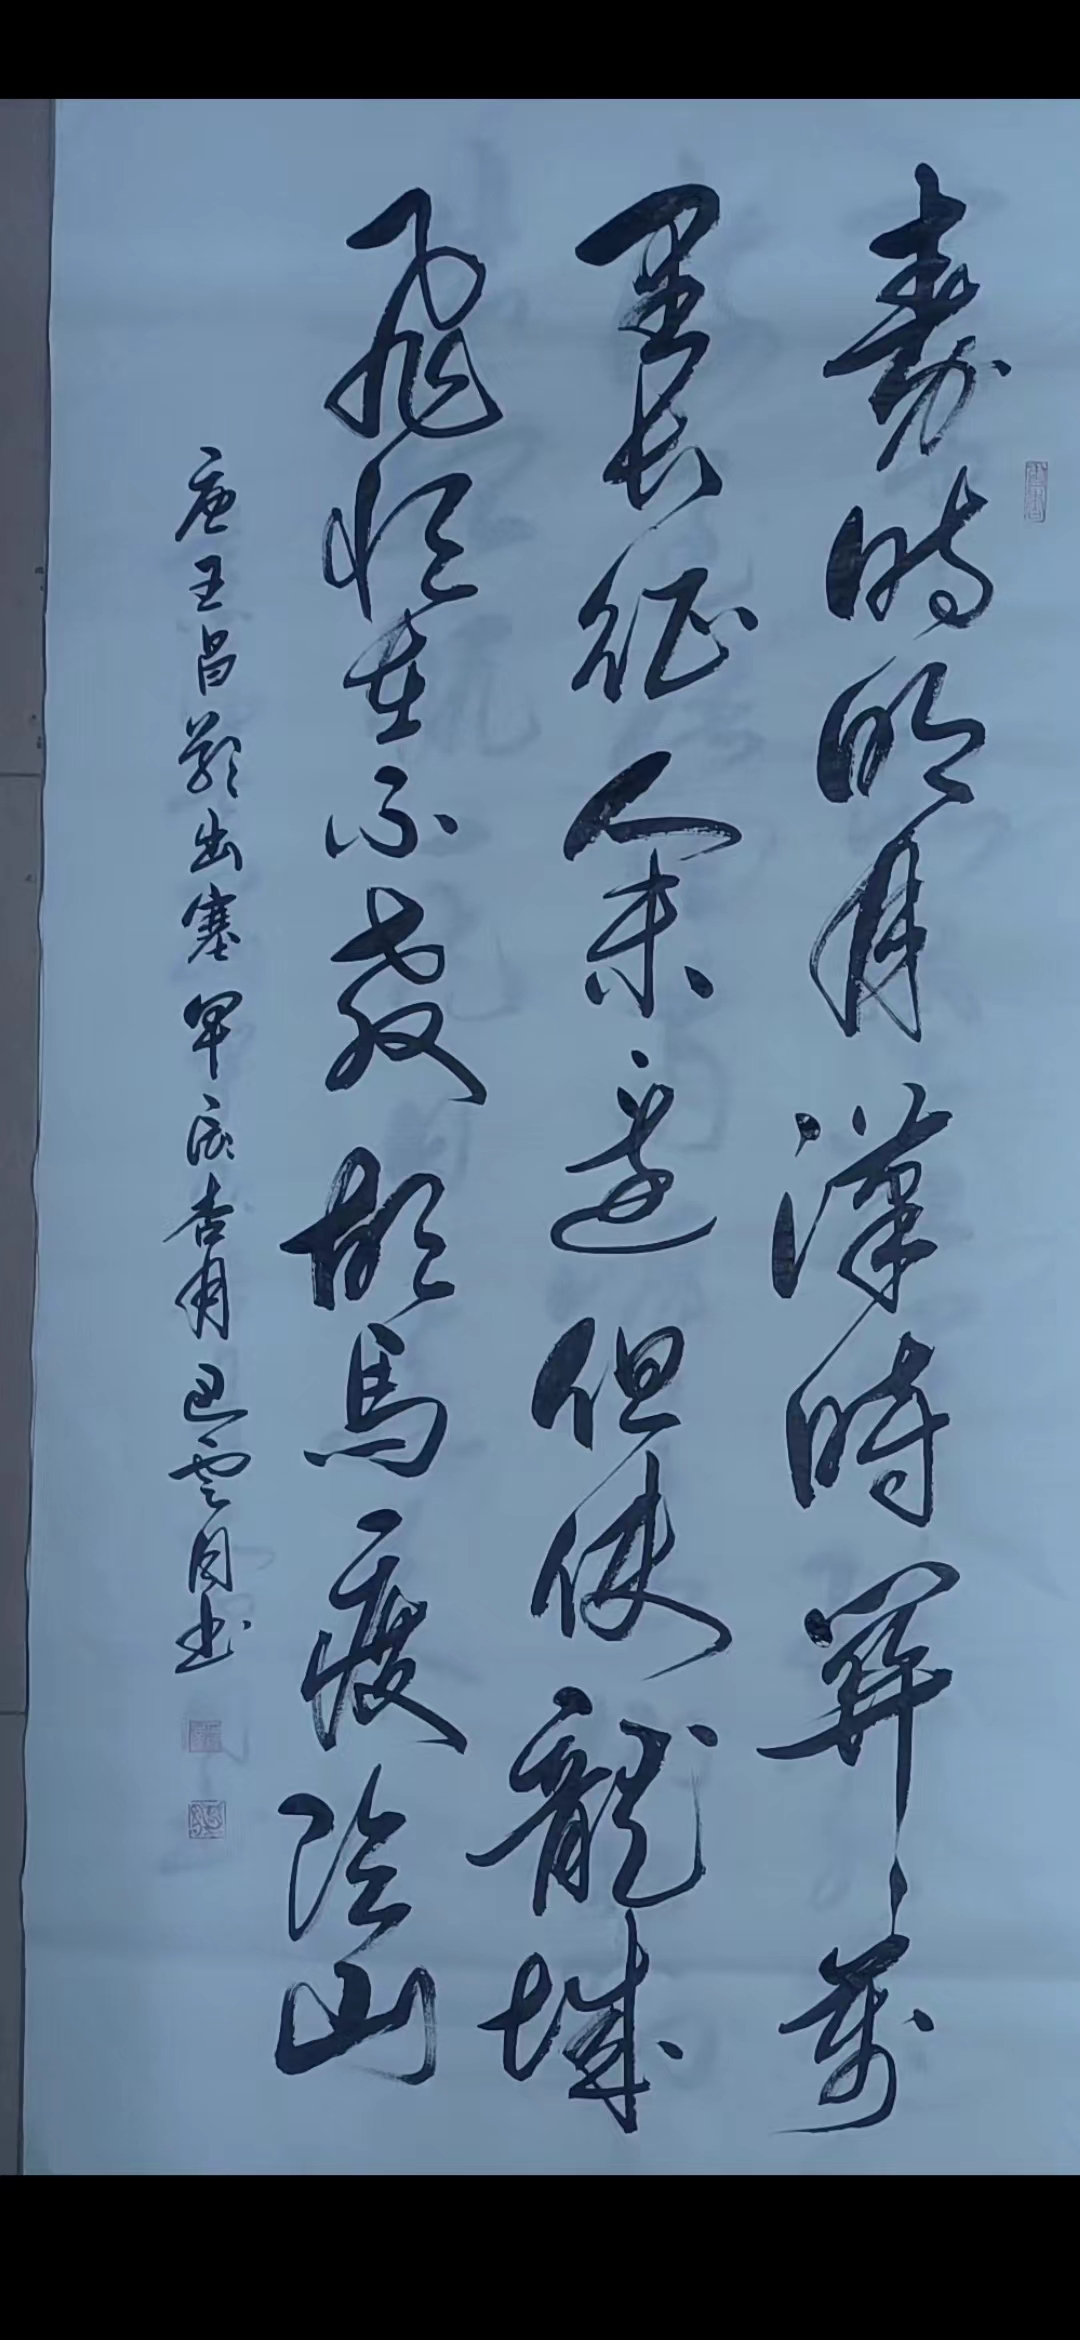 秦時明月漢時關萬
里長征人未還但使龍城
飛將在不教胡馬度陰山
唐王昌齡出塞甲辰杏月雲同书